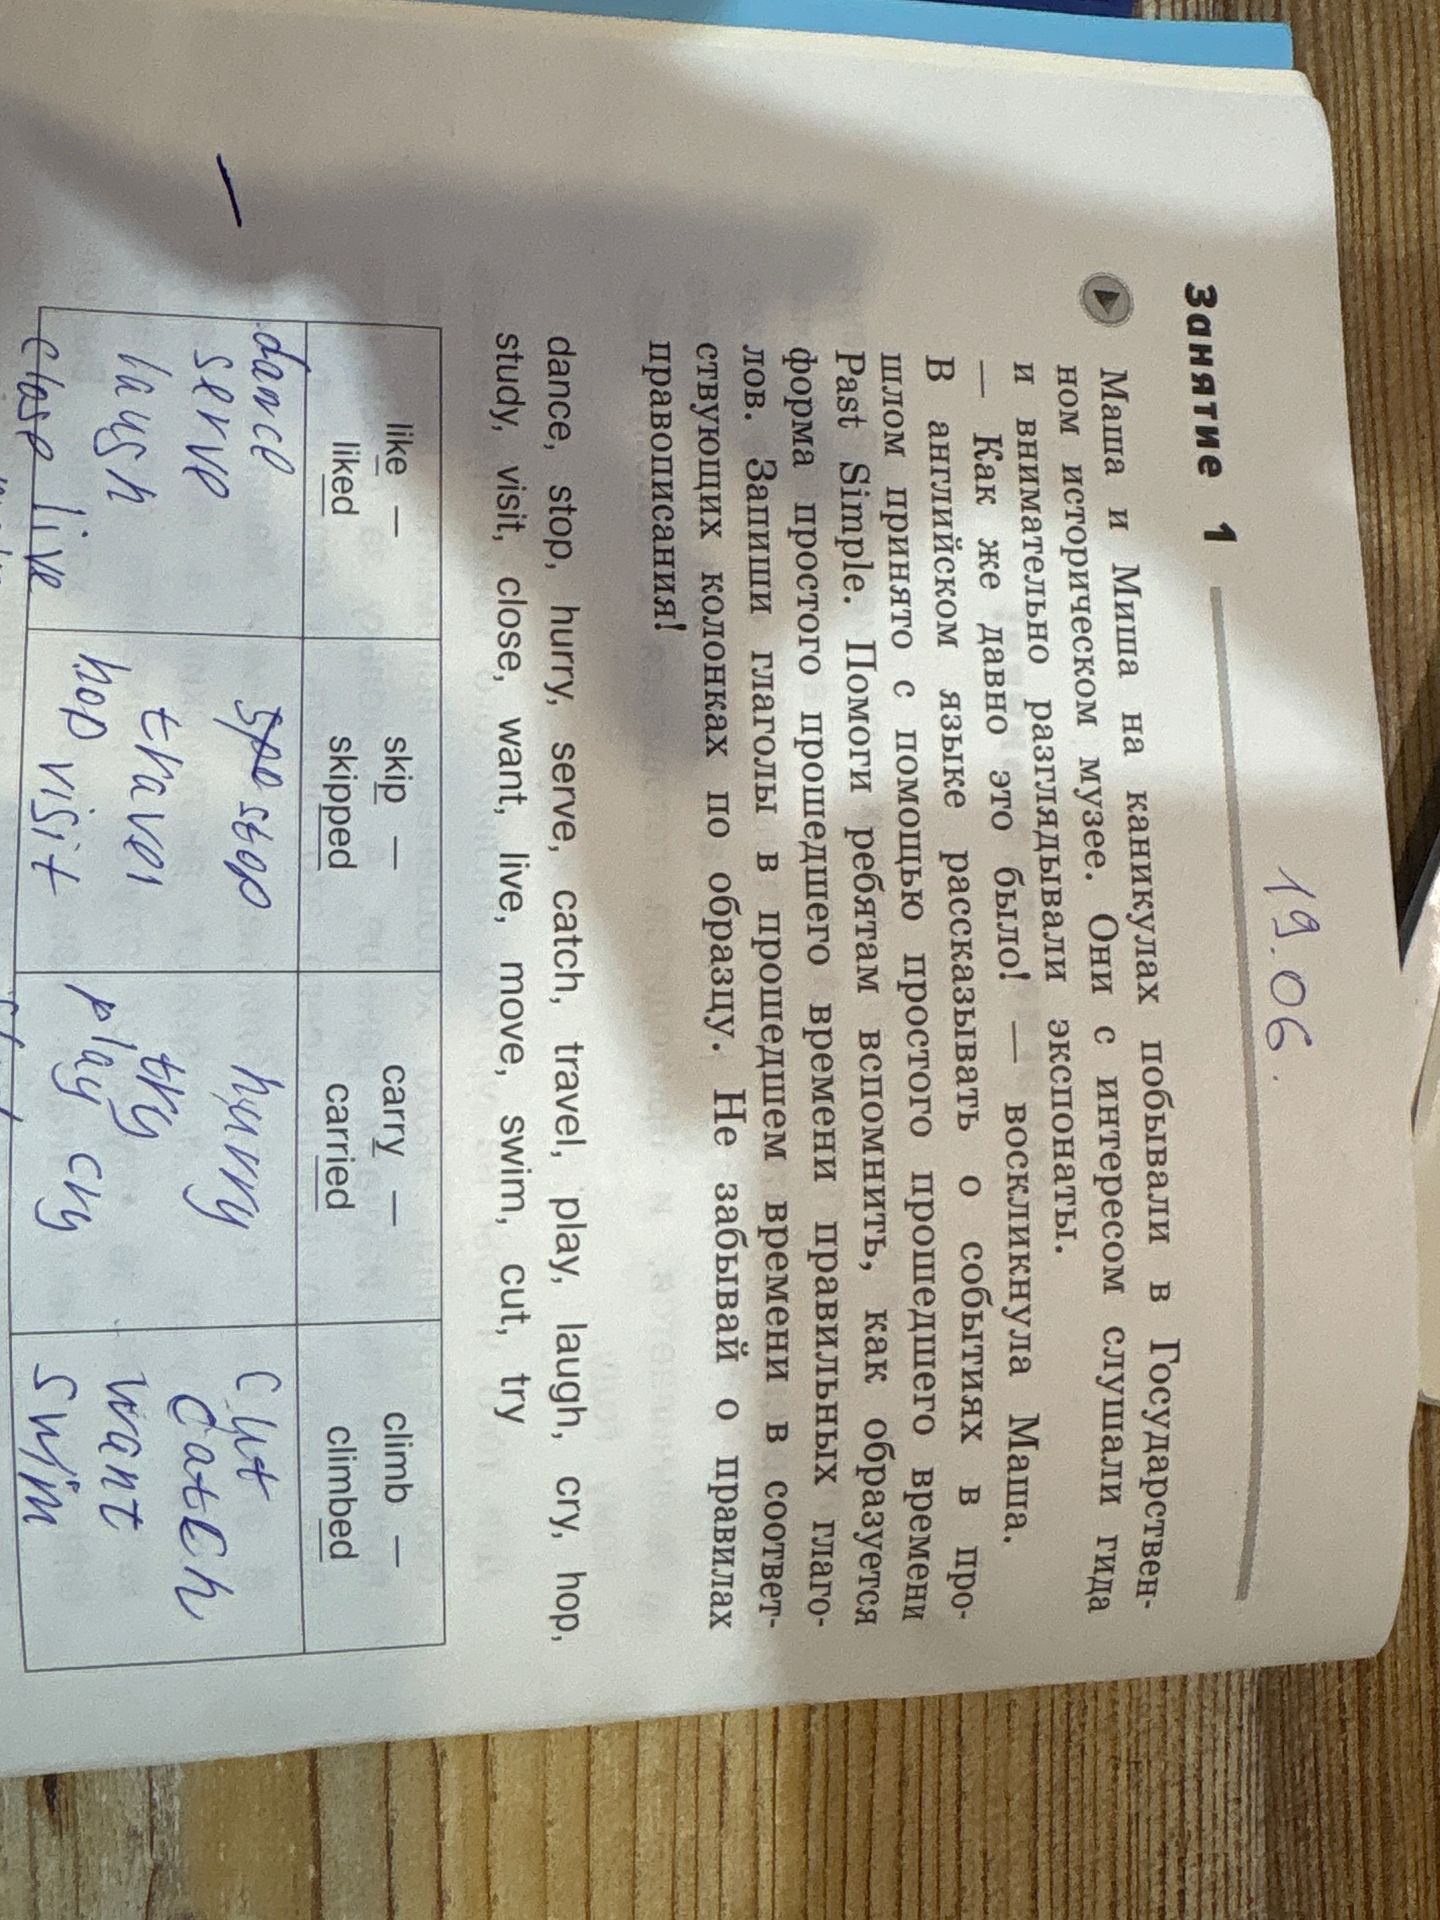 19.06.
Занятие 1
Маша и Миша на каникулах побывали в Государствен-
ном историческом музее. Они с интересом слушали гида
и внимательно разглядывали экспонаты.
— Как же давно это было! — воскликнула Маша.
В английском языке рассказывать о событиях в про-
шлом принято с помощью простого прошедшего времени
Past Simple. Помоги ребятам вспомнить, как образуется
форма простого прошедшего времени правильных глаго-
лов. Запиши глаголы в прошедшем времени в соответ-
ствующих колонках по образцу. Не забывай о правилах
правописания!
dance, stop, hurry, serve, catch, travel, play, laugh, cry, hop,
study, visit, close, want, live, move, swim, cut, try
like —
liked
skip —
skipped
carry —
carried
climb —
climbed
dance
serve
laugh
close live
stop
travel
hop visit
hurry
try
play cry
cut
catch
want
swim